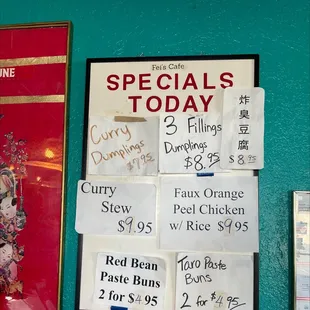 UNE
Fei's Cafe
SPECIALS
TODAY
Curry
Dumplings
$7.95
3 Fillings
Dumplings
$8.95
炸
臭
豆
腐
$8.95
Curry
Stew
$9.95
Faux Orange
Peel Chicken
w/ Rice $9.95
Red Bean
Paste Buns
2 for $4.95
Taro Paste
Buns
2 for $4.95